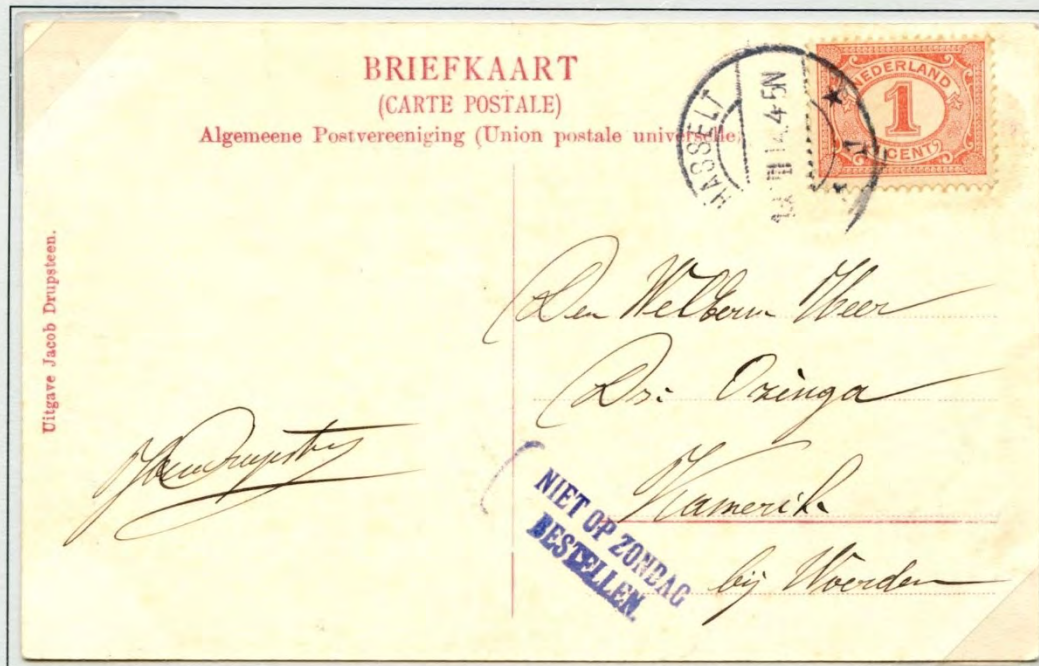 BRIEFKAART
(CARTE POSTALE)
Algemeene Postvereeniging (Union postale universelle)
HASSELT
4-5N
NEDERLAND
1
CENT
Uitgave Jacob Drupsteen.
Den Welberw Heer
Ds: Ozinga
Kamerik
bij Woerden
NIET OP ZONDAG
BESTELLEN.